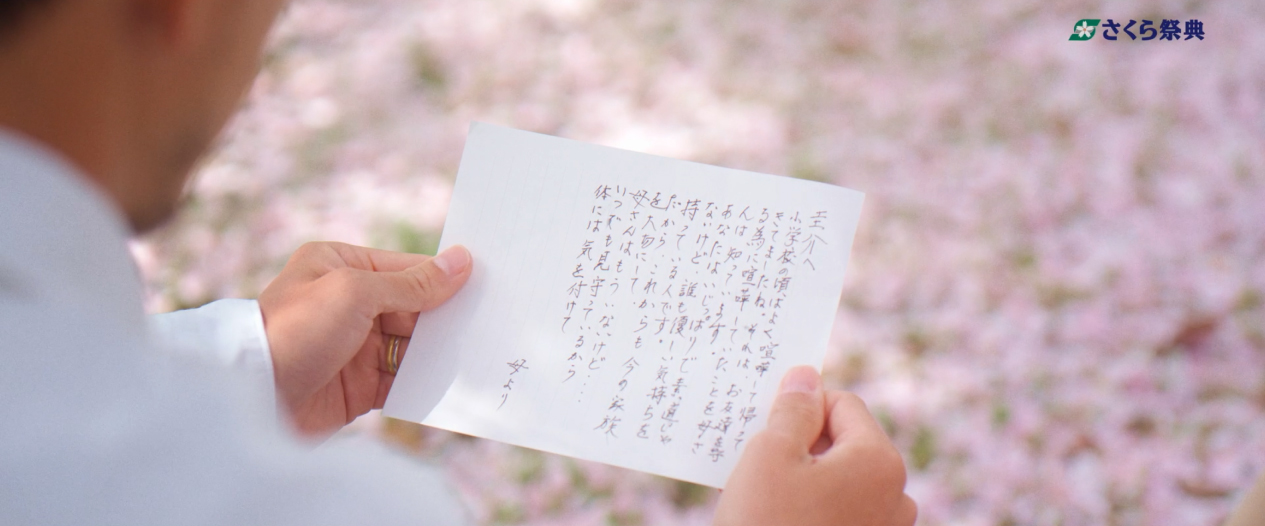 さくら祭典
圭介へ
小学校の頃、はよく喧嘩して帰って
きてましたね。それは、お友達を守
る為に喧嘩していたことを母さ
んは、知っています。
あなたは、いじっぱりで素直じゃ
ないけど、誰も優しい気持ちを
持っている人です。
だから、これからも 今の家族
を大切にして
母さんは、もういないけど…
いつでも見守っているから
体には気を付けて
母より